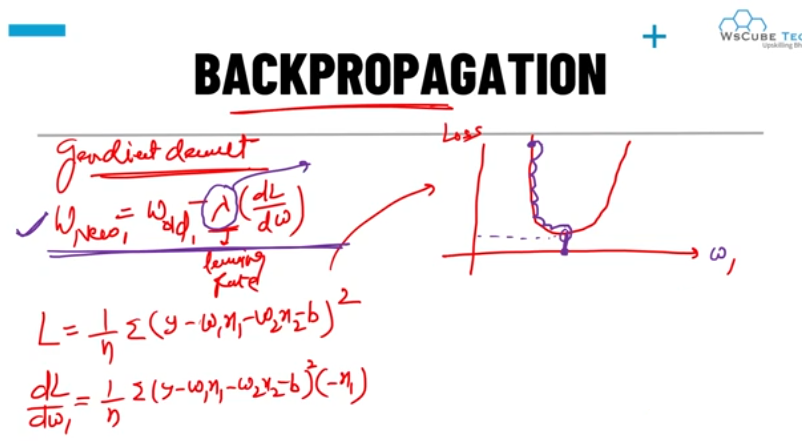 WsCube Tec
Upskilling Bh
BACKPROPAGATION
Gradient descent
Loss
W_New₁ = W_old₁ - λ (dL/dw)
learning
Rate
w₁
L = 1/n Σ (y - w₁x₁ - w₂x₂ - b)²
dL/dw₁ = 1/n Σ (y - w₁x₁ - w₂x₂ - b)² (-x₁)